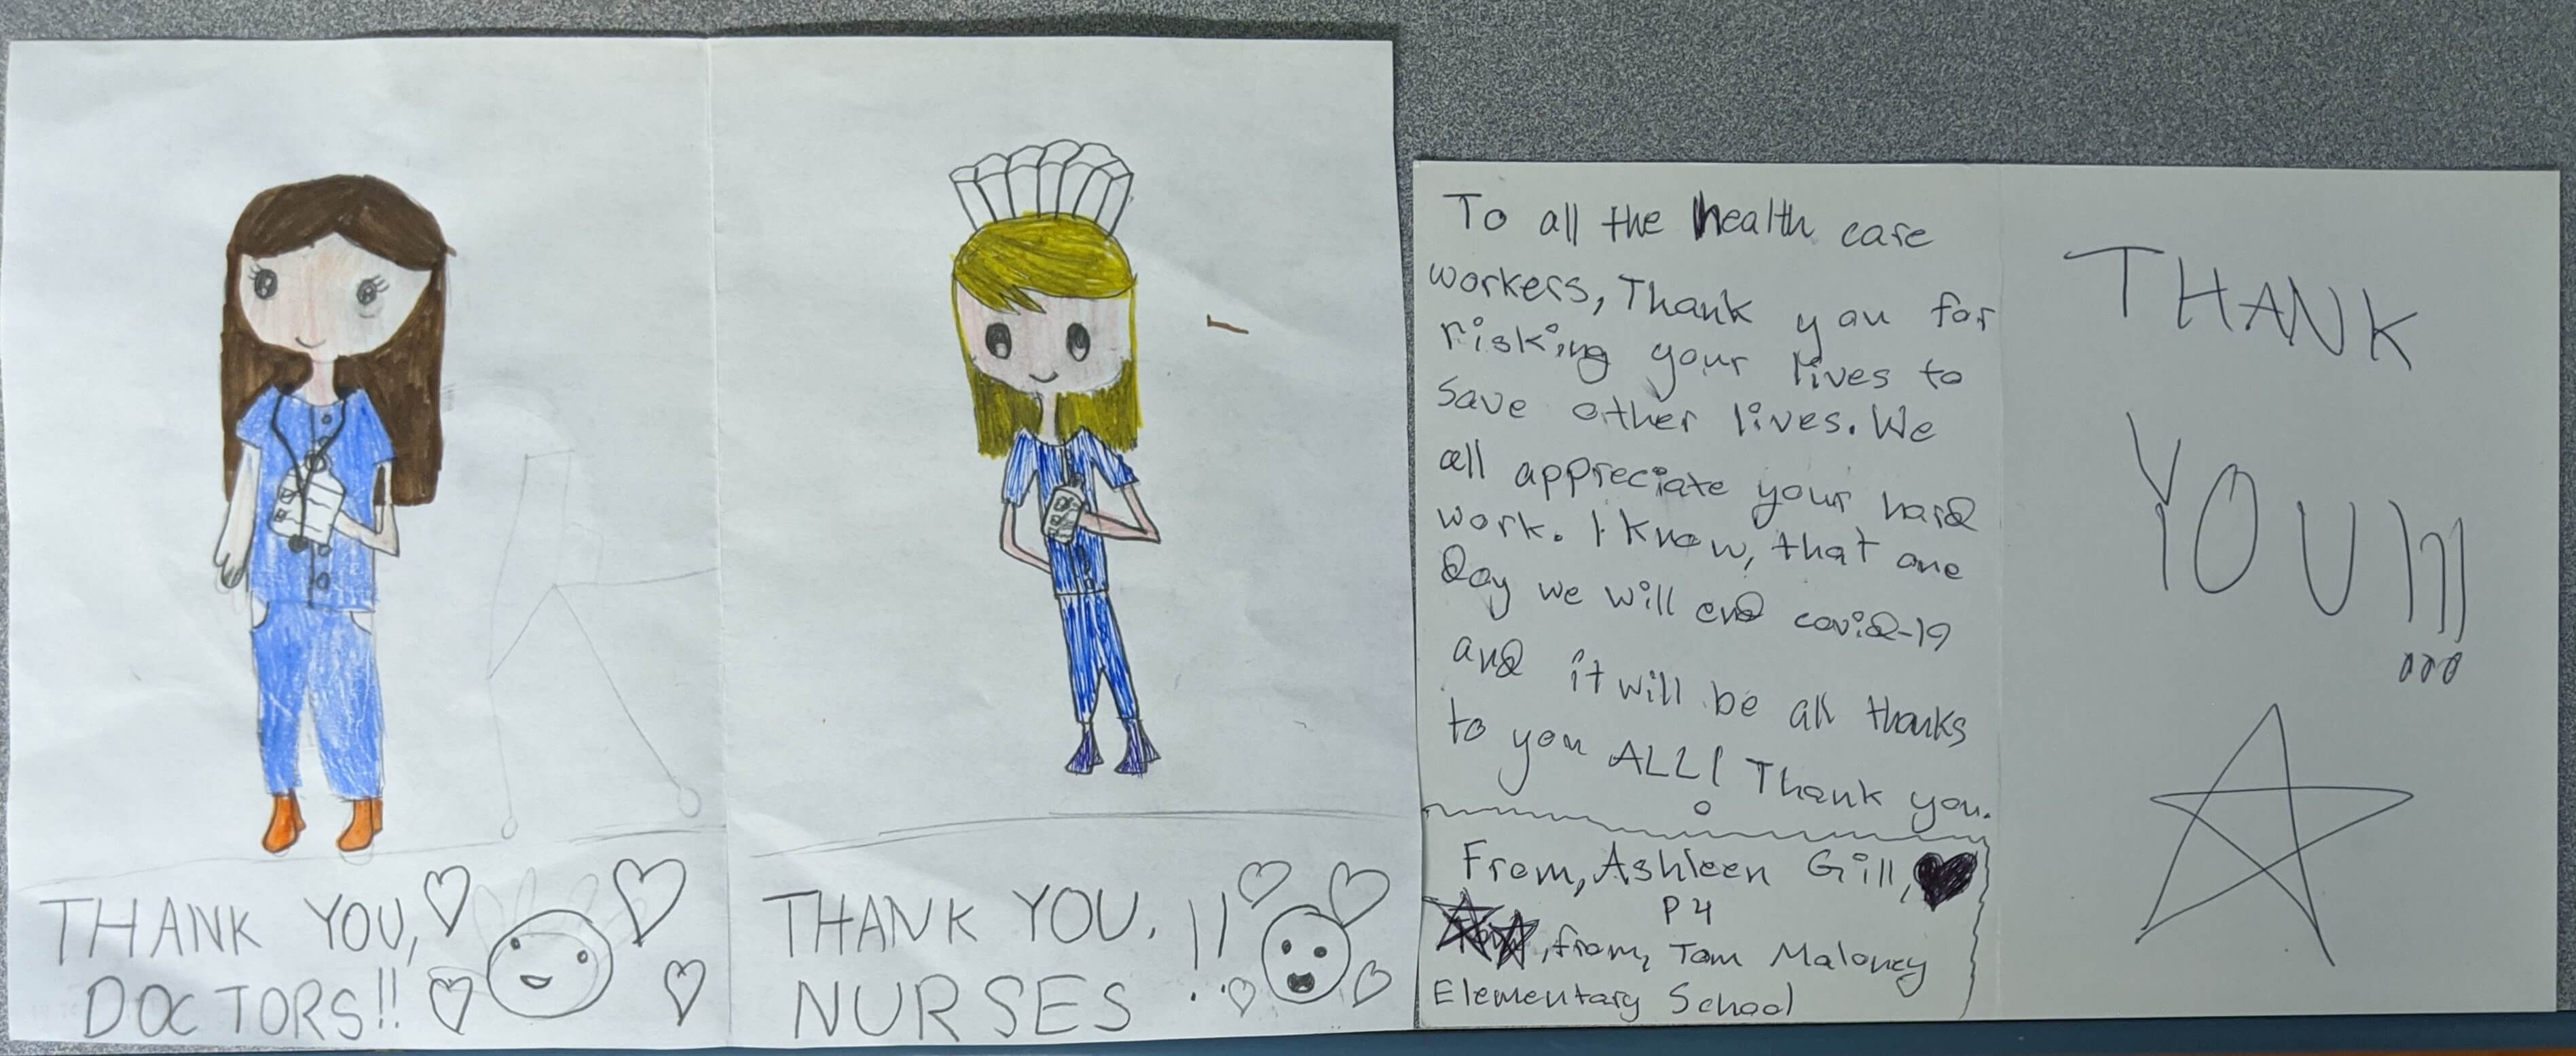 THANK YOU,
DOCTORS!!
THANK YOU, !!
NURSES
To all the health care
workers, Thank you for
risking your lives to
save other lives. We
all appreciate your hard
work. I know, that one
day we will end covid-19
and it will be all thanks
to you ALL! Thank you.
From, Ashleen Gill,
P4
, from, Tom Maloney
Elementary School
THANK
YOU!!!